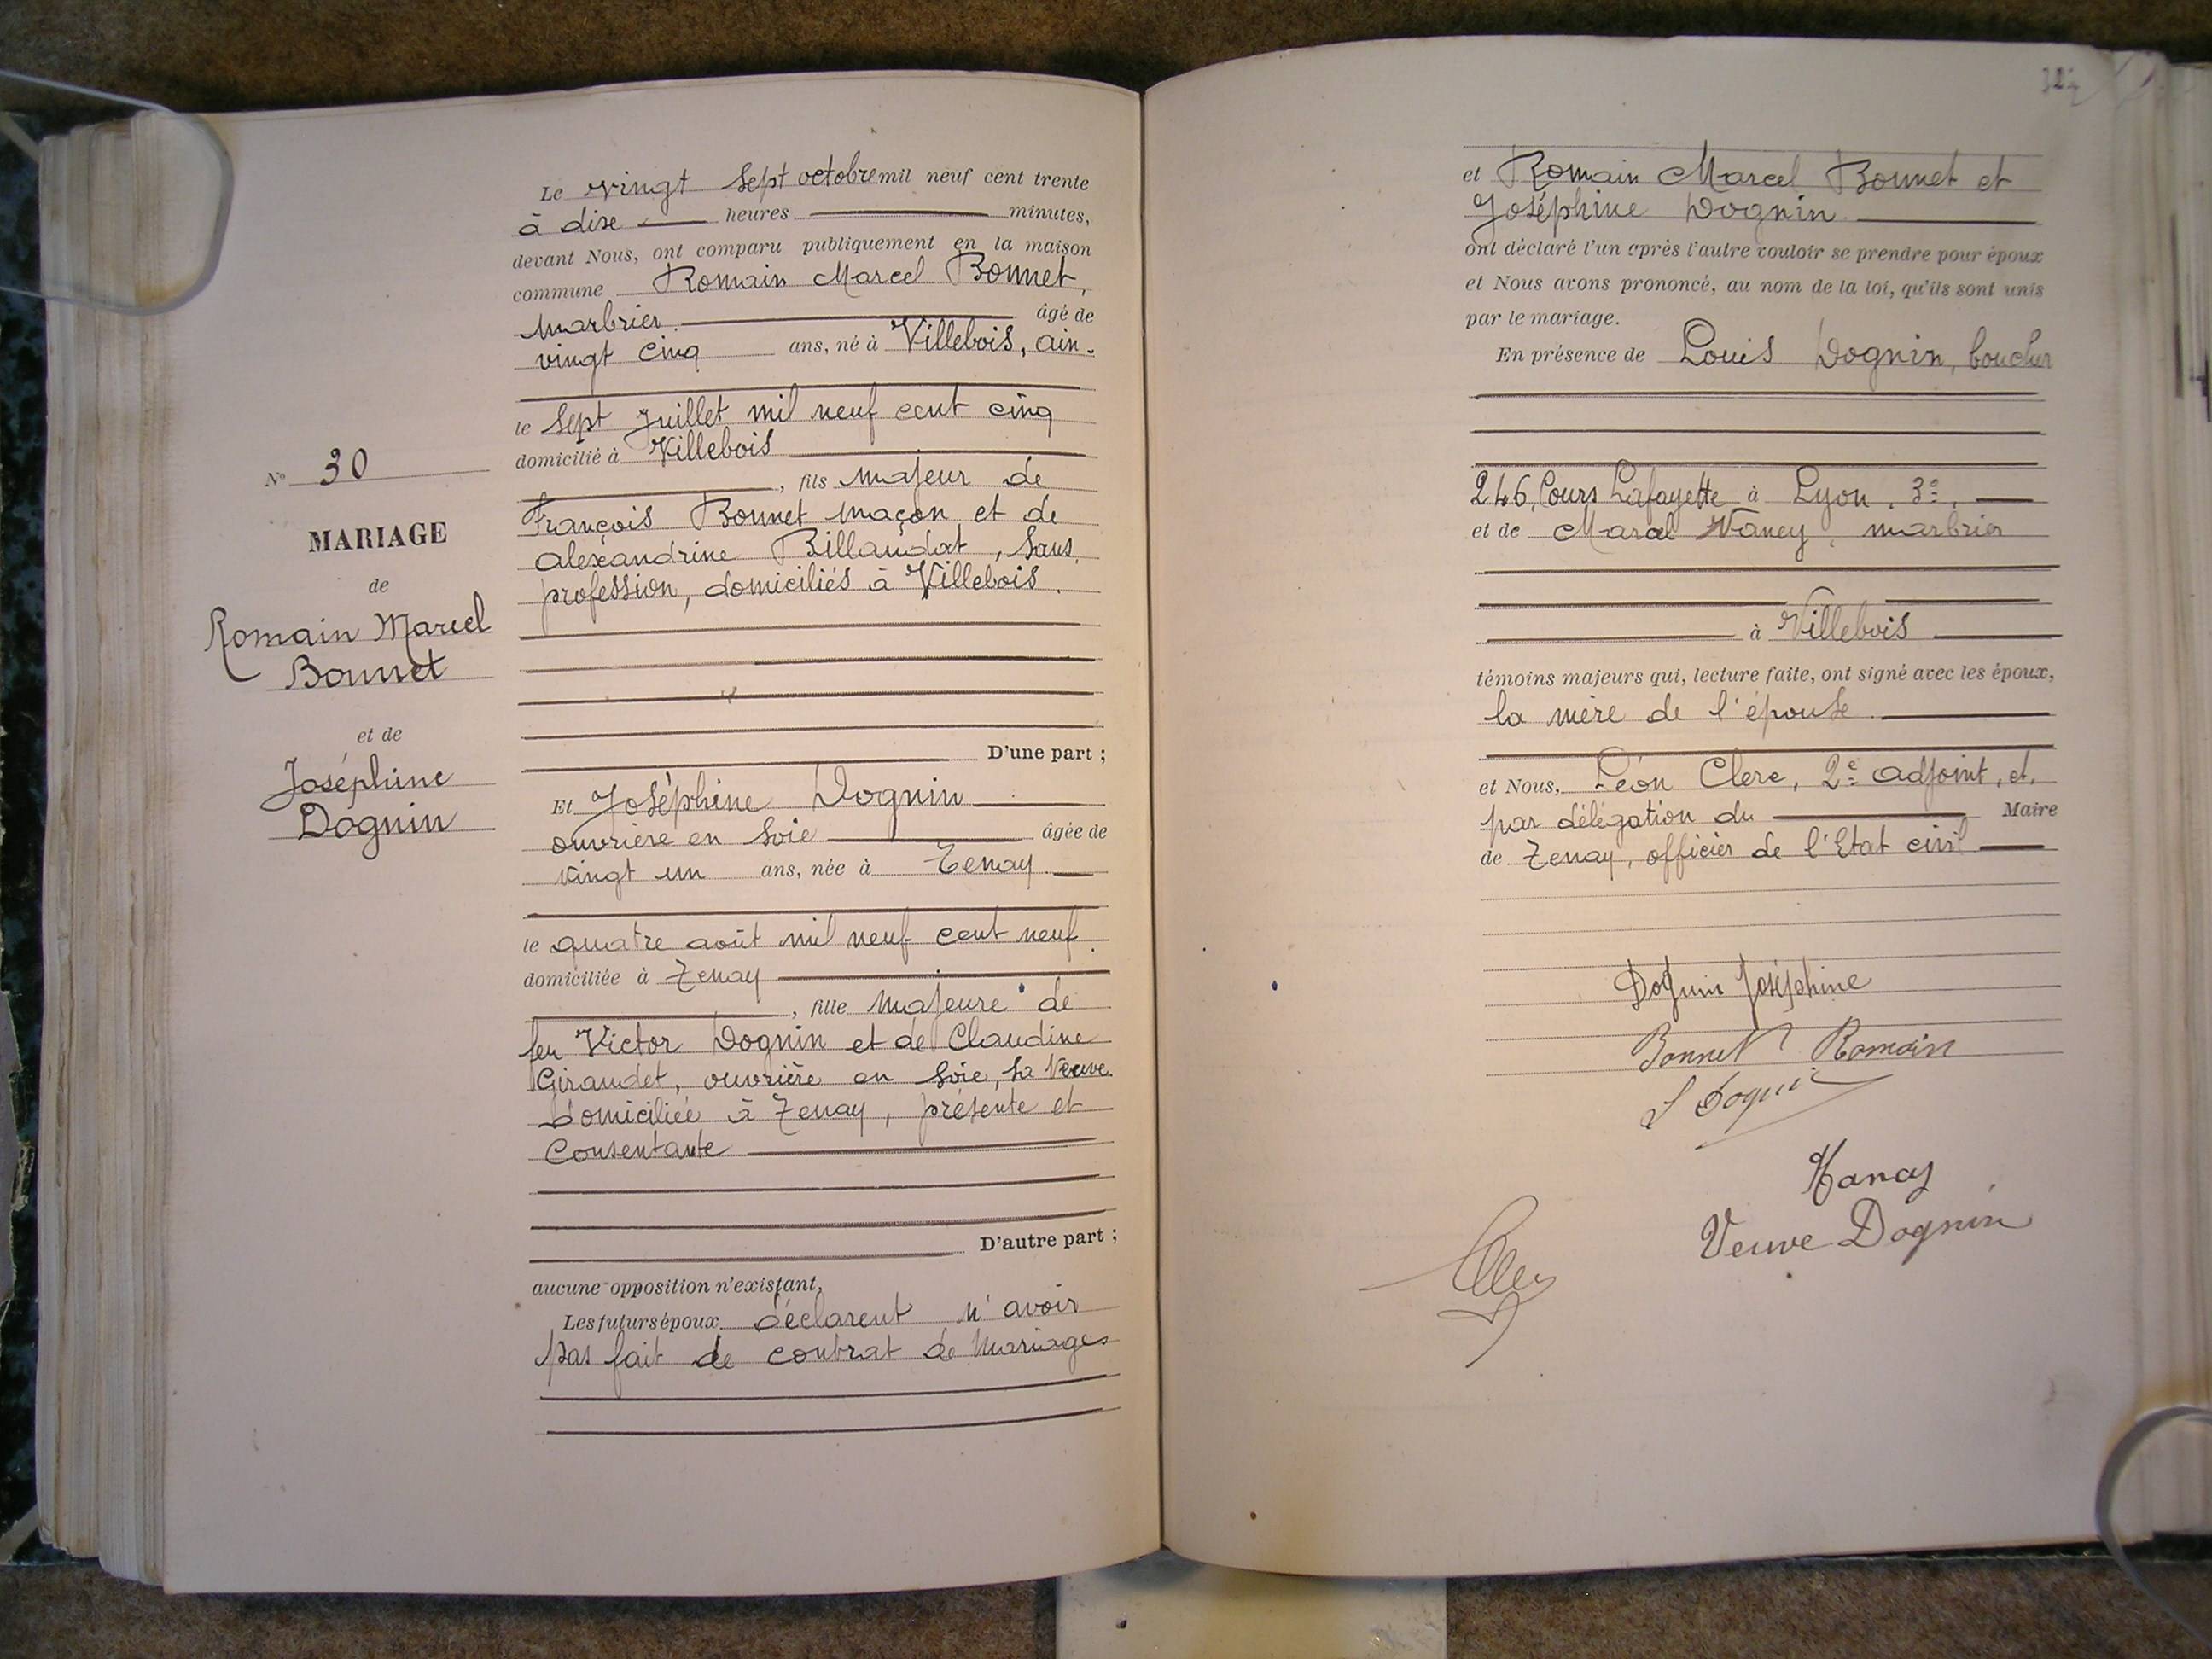 Le vingt sept octobre mil neuf cent trente
à dix heures minutes,
devant Nous, ont comparu publiquement en la maison
commune Romain Marcel Bonnet,
marbrier. âgé de
vingt cinq ans, né à Villebois, ain.
le sept juillet mil neuf cent cinq
domicilié à Villebois
, fils majeur de
François Bonnet maçon et de
alexandrine Billaudat, sans
profession, domiciliés à Villebois.
D'une part ;
N° 30
MARIAGE
de
Romain Marcel
Bonnet
et de
Joséphine
Dognin
Et Joséphine Dognin
ouvrière en soie âgée de
vingt un ans, née à Tenay.
le quatre août mil neuf cent neuf.
domiciliée à Tenay
, fille majeure de
feu Victor Dognin et de Claudine
Giraudet, ouvrière en soie, sa Veuve
domiciliée à Tenay, présente et
Consentante
D'autre part ;
aucune opposition n'existant,
Les futurs époux déclarent n'avoir
pas fait de contrat de mariages
et Romain Marcel Bonnet et
Joséphine Dognin.
ont déclaré l'un après l'autre vouloir se prendre pour époux
et Nous avons prononcé, au nom de la loi, qu'ils sont unis
par le mariage.
En présence de Louis Dognin, boucher
246, Cours Lafayette à Lyon. 3e.
et de Marcel Vaney, marbrier
à Villebois
témoins majeurs qui, lecture faite, ont signé avec les époux,
la mère de l'épouse.
et Nous, Léon Clerc, 2e adjoint, et.
par délégation du Maire
de Tenay, officier de l'Etat civil
Dognin Joséphine
Bonnet Romain
L Dognin
Veuve Dognin